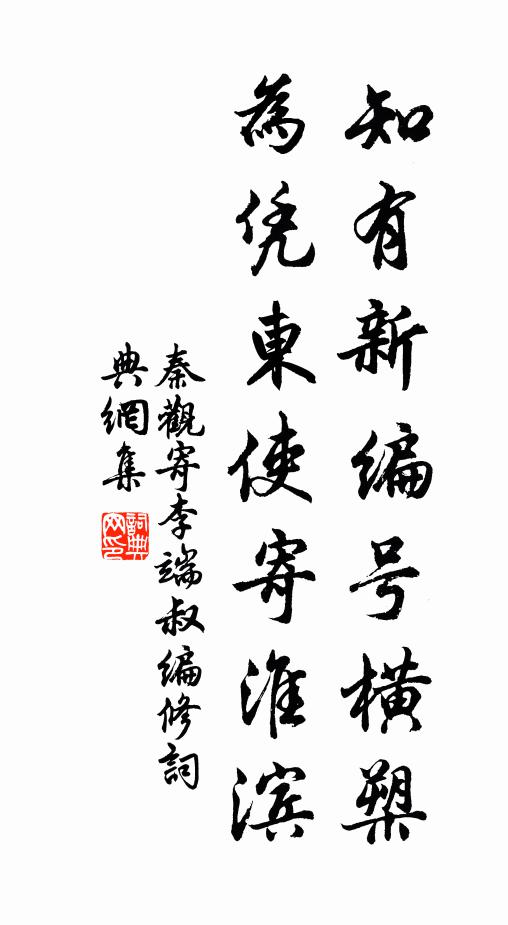 知有新编号横槊
為凭東使寄淮滨
秦觀寄李端叔编修詞
典網集
詞典網印